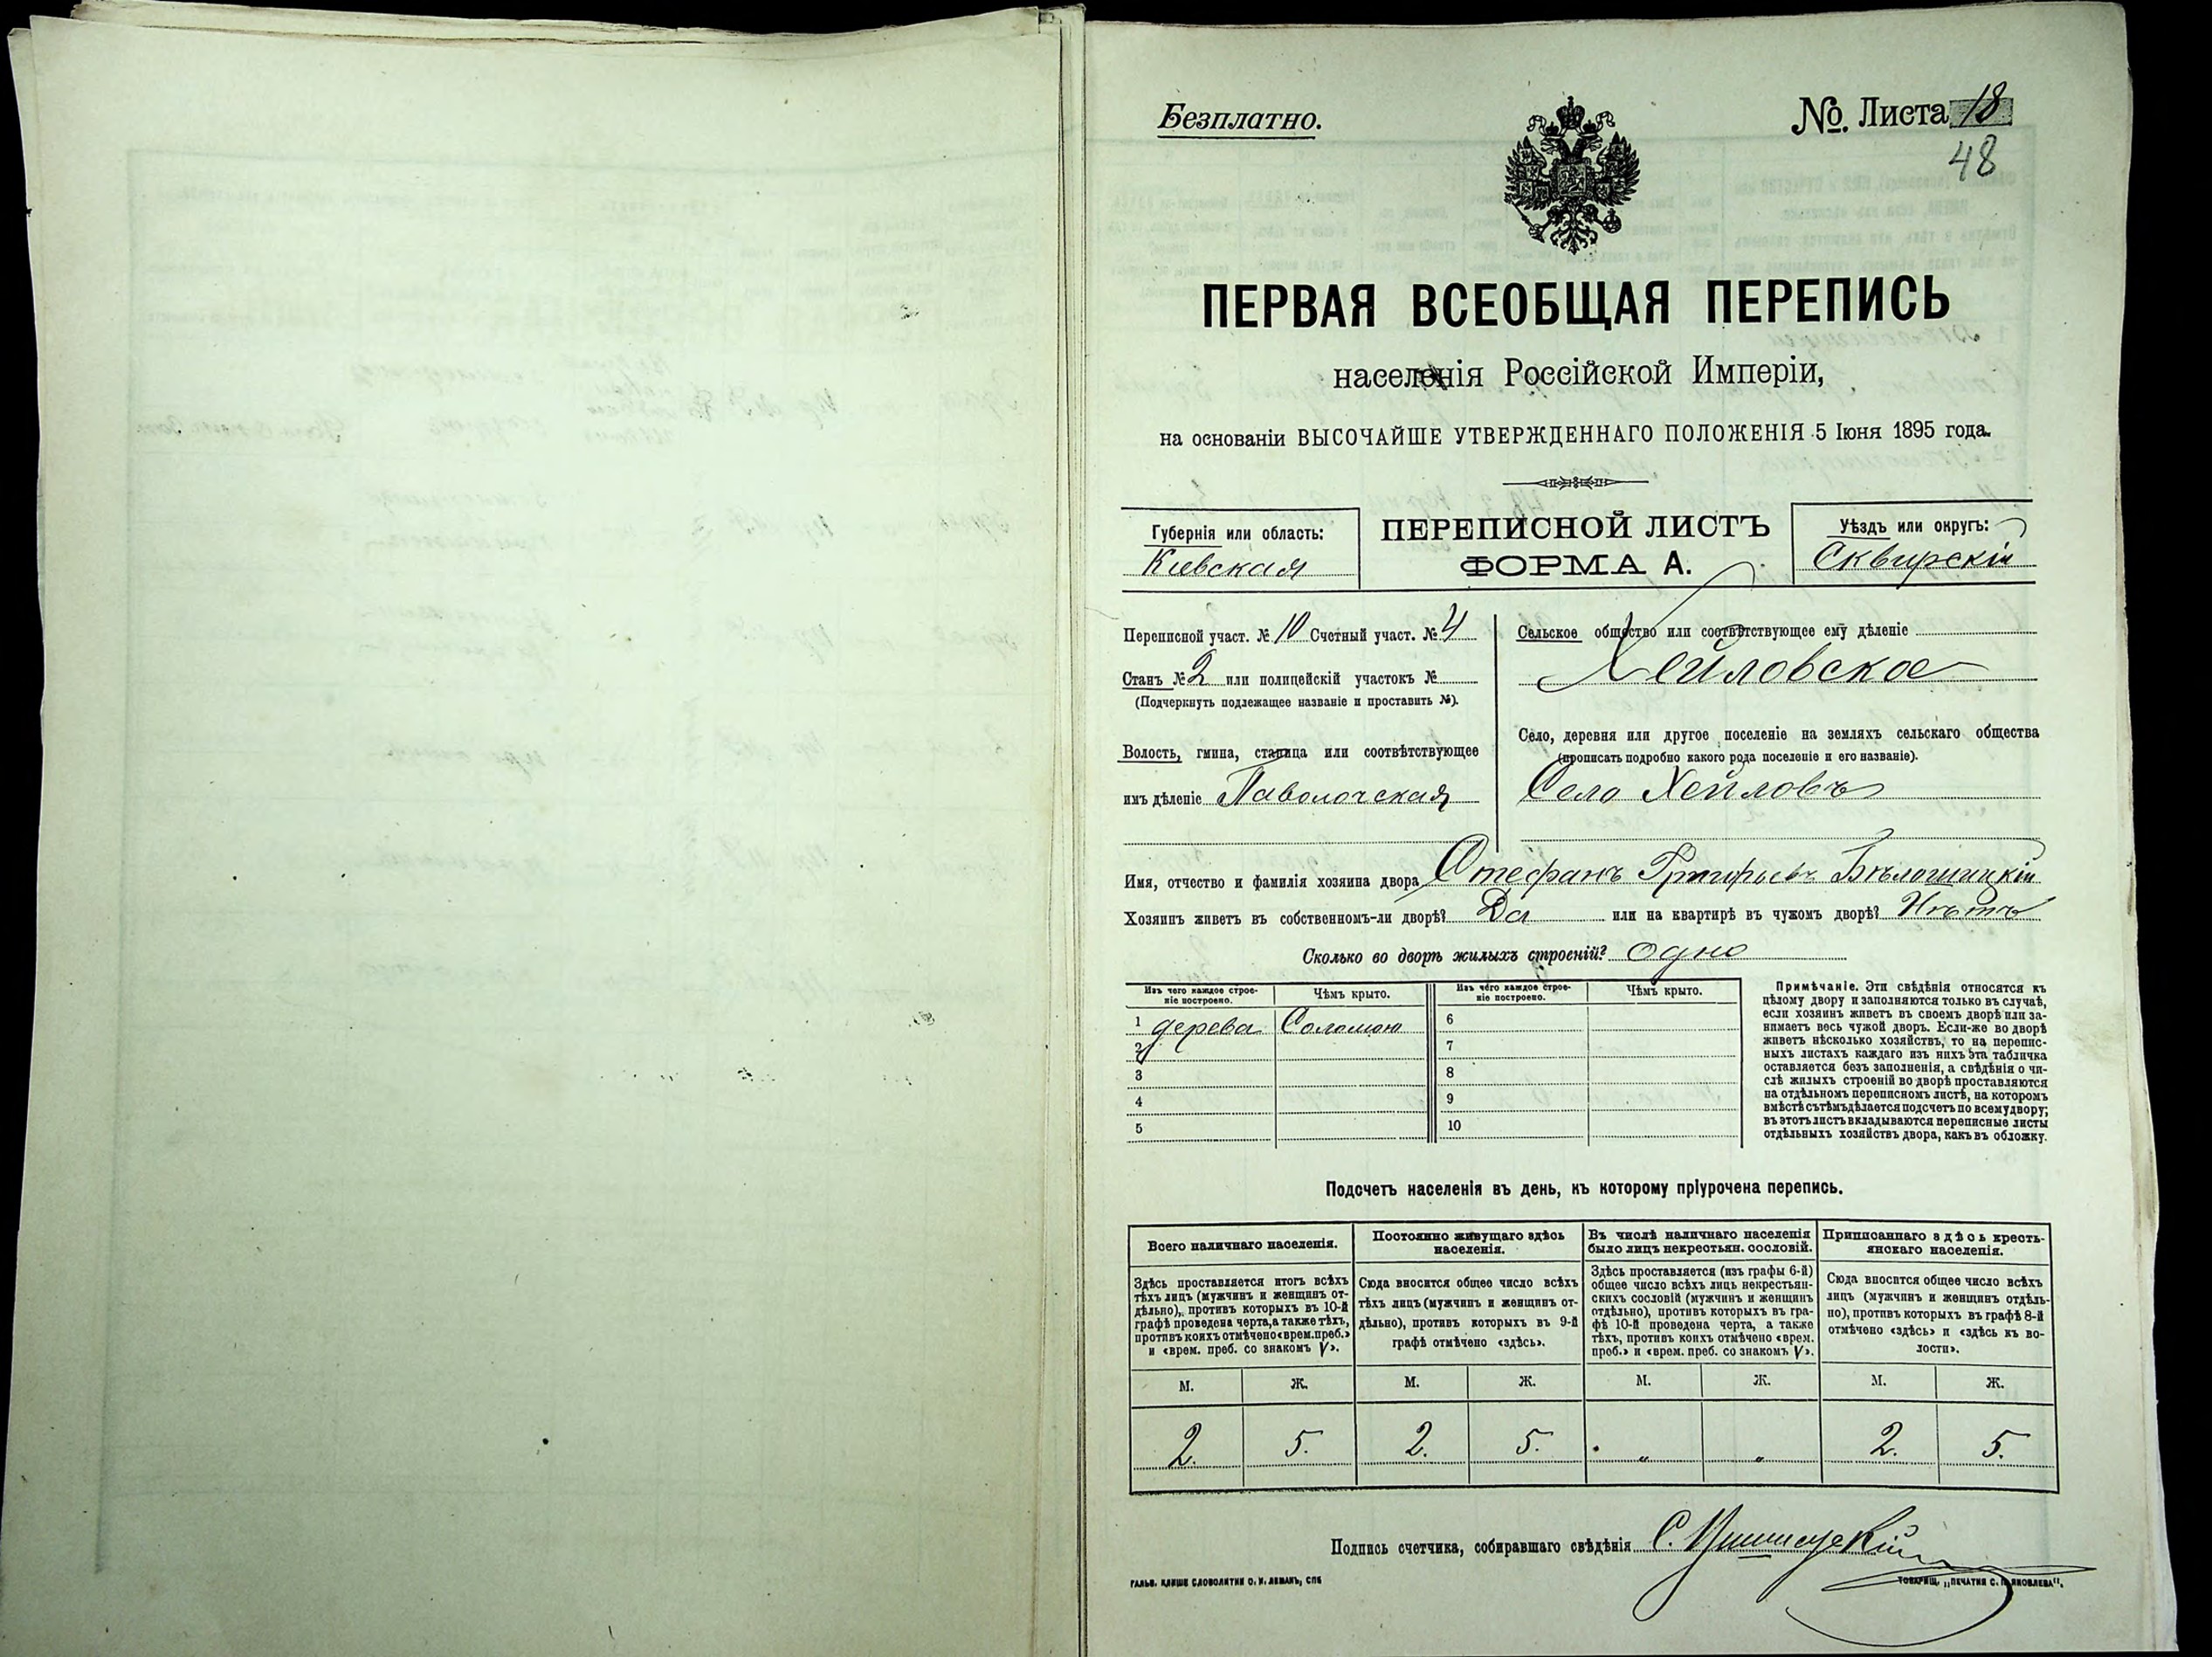 Безплатно.
№ Листа 18
48
ПЕРВАЯ ВСЕОБЩАЯ ПЕРЕПИСЬ
населенія Россійской Имперіи,
на основаніи ВЫСОЧАЙШЕ УТВЕРЖДЕННАГО ПОЛОЖЕНІЯ 5 Іюня 1895 года.
Губернія или область:
Киевская
ПЕРЕПИСНОЙ ЛИСТЪ
ФОРМА А.
Уѣздъ или округъ:
Сквирскій
Переписной участ. № 10 Счетный участ. № 4
Станъ № 2 или полицейскій участокъ №
(Подчеркнуть подлежащее названіе и проставить №).
Волость, гмина, станица или соотвѣтствующее
имъ дѣленіе Паволочская
Сельское общество или соотвѣтствующее ему дѣленіе
Хейловское
Село, деревня или другое поселеніе на земляхъ сельскаго общества
(прописать подробно какого рода поселеніе и его названіе).
Село Хейловъ
Имя, отчество и фамилія хозяина двора Стефанъ Григорьевъ Бѣлошицкій
Хозяинъ живетъ въ собственномъ-ли дворѣ? Да или на квартирѣ въ чужомъ дворѣ? Нѣтъ
Сколько во дворѣ жилыхъ строеній? Одно
Изъ чего каждое строе-
ніе построено.
Чѣмъ крыто.
Изъ чего каждое строе-
ніе построено.
Чѣмъ крыто.
1 дерева Соломою 6
2 7
3 8
4 9
5 10
Примѣчаніе. Эти свѣдѣнія относятся къ
цѣлому двору и заполняются только въ случаѣ,
если хозяинъ живетъ въ своемъ дворѣ или за-
нимаетъ весь чужой дворъ. Если-же во дворѣ
живетъ нѣсколько хозяйствъ, то на перепис-
ныхъ листахъ каждаго изъ нихъ эта табличка
оставляется безъ заполненія, а свѣдѣнія о чи-
слѣ жилыхъ строеній во дворѣ проставляются
на отдѣльномъ переписномъ листѣ, на которомъ
вмѣстѣ съ тѣмъ дѣлается подсчетъ по всему двору;
въ этотъ листъ вкладываются переписные листы
отдѣльныхъ хозяйствъ двора, какъ въ обложку.
Подсчетъ населенія въ день, къ которому пріурочена перепись.
Всего наличнаго населенія.
Здѣсь проставляется итогъ всѣхъ
тѣхъ лицъ (мужчинъ и женщинъ от-
дѣльно), противъ которыхъ въ 10-й
графѣ проведена черта, а также тѣхъ,
противъ коихъ отмѣчено «врем. преб.»
и «врем. преб. со знакомъ V».
Постоянно живущаго здѣсь
населенія.
Сюда вносится общее число всѣхъ
тѣхъ лицъ (мужчинъ и женщинъ от-
дѣльно), противъ которыхъ въ 9-й
графѣ отмѣчено «здѣсь».
Въ числѣ наличнаго населенія
было лицъ некрестьян. сословій.
Здѣсь проставляется (изъ графы 6-й)
общее число всѣхъ лицъ некрестьян-
скихъ сословій (мужчинъ и женщинъ
отдѣльно), противъ которыхъ въ гра-
фѣ 10-й проведена черта, а также
тѣхъ, противъ коихъ отмѣчено «врем.
преб.» и «врем. преб. со знакомъ V».
Приписаннаго здѣсь кресть-
янскаго населенія.
Сюда вносится общее число всѣхъ
лицъ (мужчинъ и женщинъ отдѣль-
но), противъ которыхъ въ графѣ 8-й
отмѣчено «здѣсь» и «здѣсь къ во-
лости».
М. Ж. М. Ж. М. Ж. М. Ж.
2. 5. 2. 5. „ „ 2. 5.
Подпись счетчика, собиравшаго свѣдѣнія С.
ГАЛЬВ. КЛИШЕ СЛОВОЛИТНИ О. И. ЛЕМАНЪ, СПБ
ТОВАРИЩ. „ПЕЧАТНЯ С. П. ЯКОВЛЕВА".